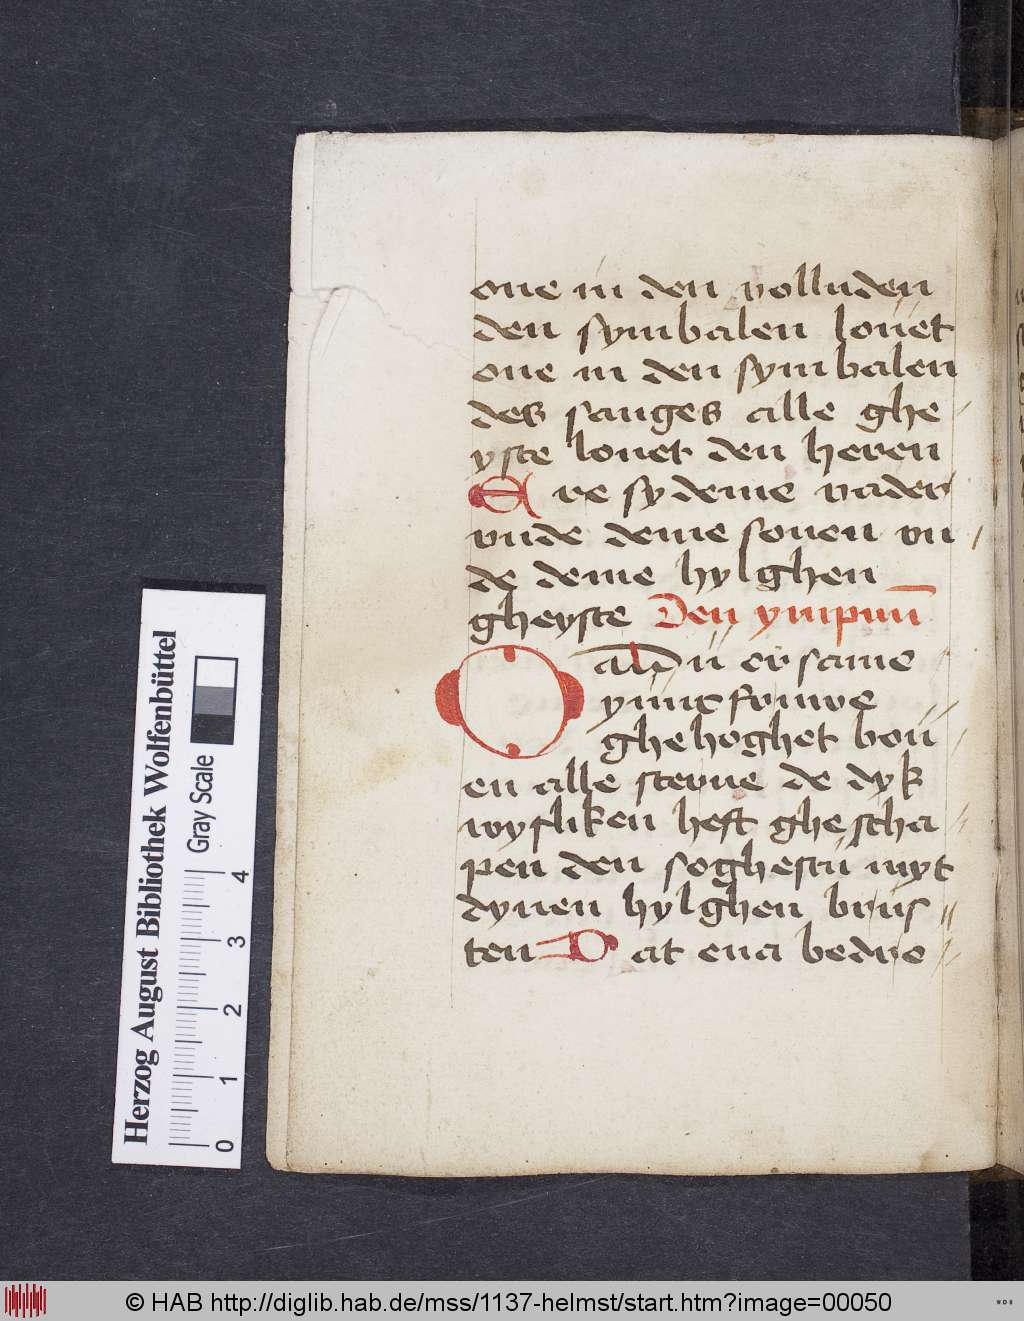 one in den volluden
den symbalen louet
one in den symbalen
des sanges alle ghe
yste louet den heren
Ere sy deme vader
vnde deme sonen vn
de deme hylghen
gheyste Den ympnū
O aldū ersame
yuncfrouwe
ghehoghet bou
en alle sterne de dyk
wysliken heft ghescha
pen den soghestu myt
dynen hylghen brus
ten Dat eua bedro
Herzog August Bibliothek Wolfenbüttel
Gray Scale
0 1 2 3 4
© HAB http://diglib.hab.de/mss/1137-helmst/start.htm?image=00050